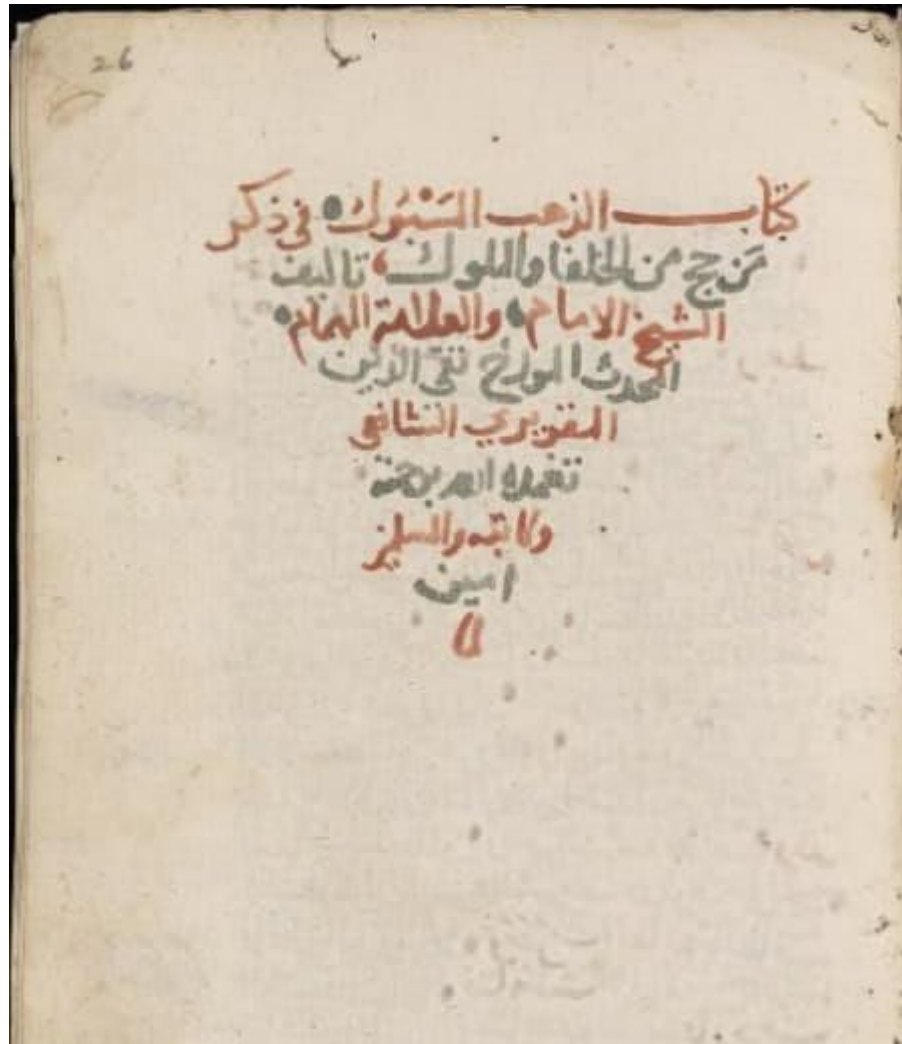 26
كتاب الذهب المسبوك في ذكر
من حج من الخلفا والملوك، تاليف
الشيخ الامام، والعلامة الهمام
المحدث المورخ تقي الدين
المقريزي الشافعي
تغمده الله برحمته
وكاتبه والمسلمين
امين